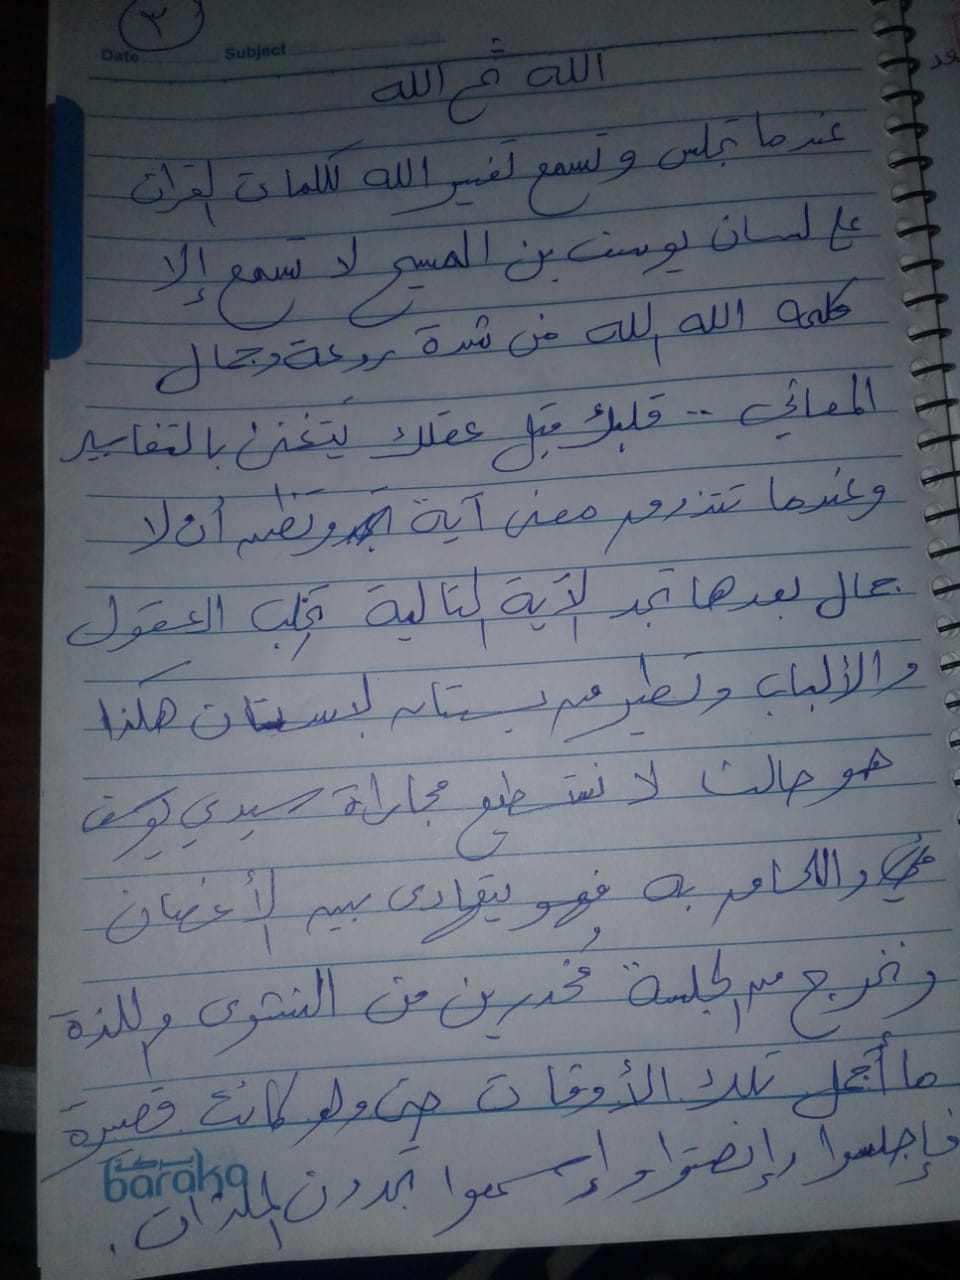 ٣
Date Subject
الله ثم الله
عندما تجلس و تسمع تفسير الله لكلمات القرآن
على لسان يوسف بن المسيح لا تسمع إلا
كلمة الله الله من شدة روعة وجمال
المعاني .. قلبك قبل عقلك يتغنى بالتفاسير
وعندما تتذوق معنى آية وتظن أن لا
جمال بعدها تجد الآية التالية تجلب العقول
والألباب وتطير من بستان لبستان هكذا
هو حالنا لا نستطيع مجاراة سيدي يوسف
واللحاق به فهو يتهادى بين الأغصان
ونخرج من الجلسة مُخدرين من النشوى واللذة
ما أجمل تلك الأوقات حتى ولو كانت قصيرة
فإجلسوا وإنصتوا وإسمعوا تجدون الملذات .
baraka